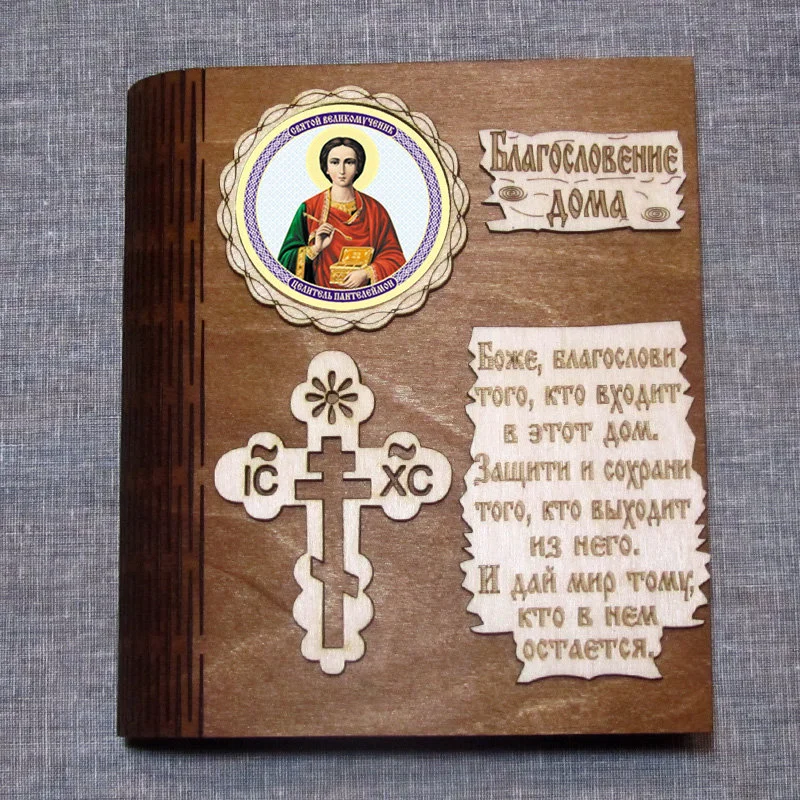 СВЯТОЙ ВЕЛИКОМУЧЕНИК
ЦЕЛИТЕЛЬ ПАНТЕЛЕЙМОН
Благословение
дома
IC
XC
Боже, благослови
того, кто входит
в этот дом.
Защити и сохрани
того, кто выходит
из него.
И дай мир тому,
кто в нем
остается.